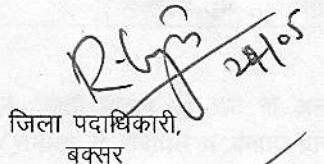 24/05
जिला पदाधिकारी,
बक्सर